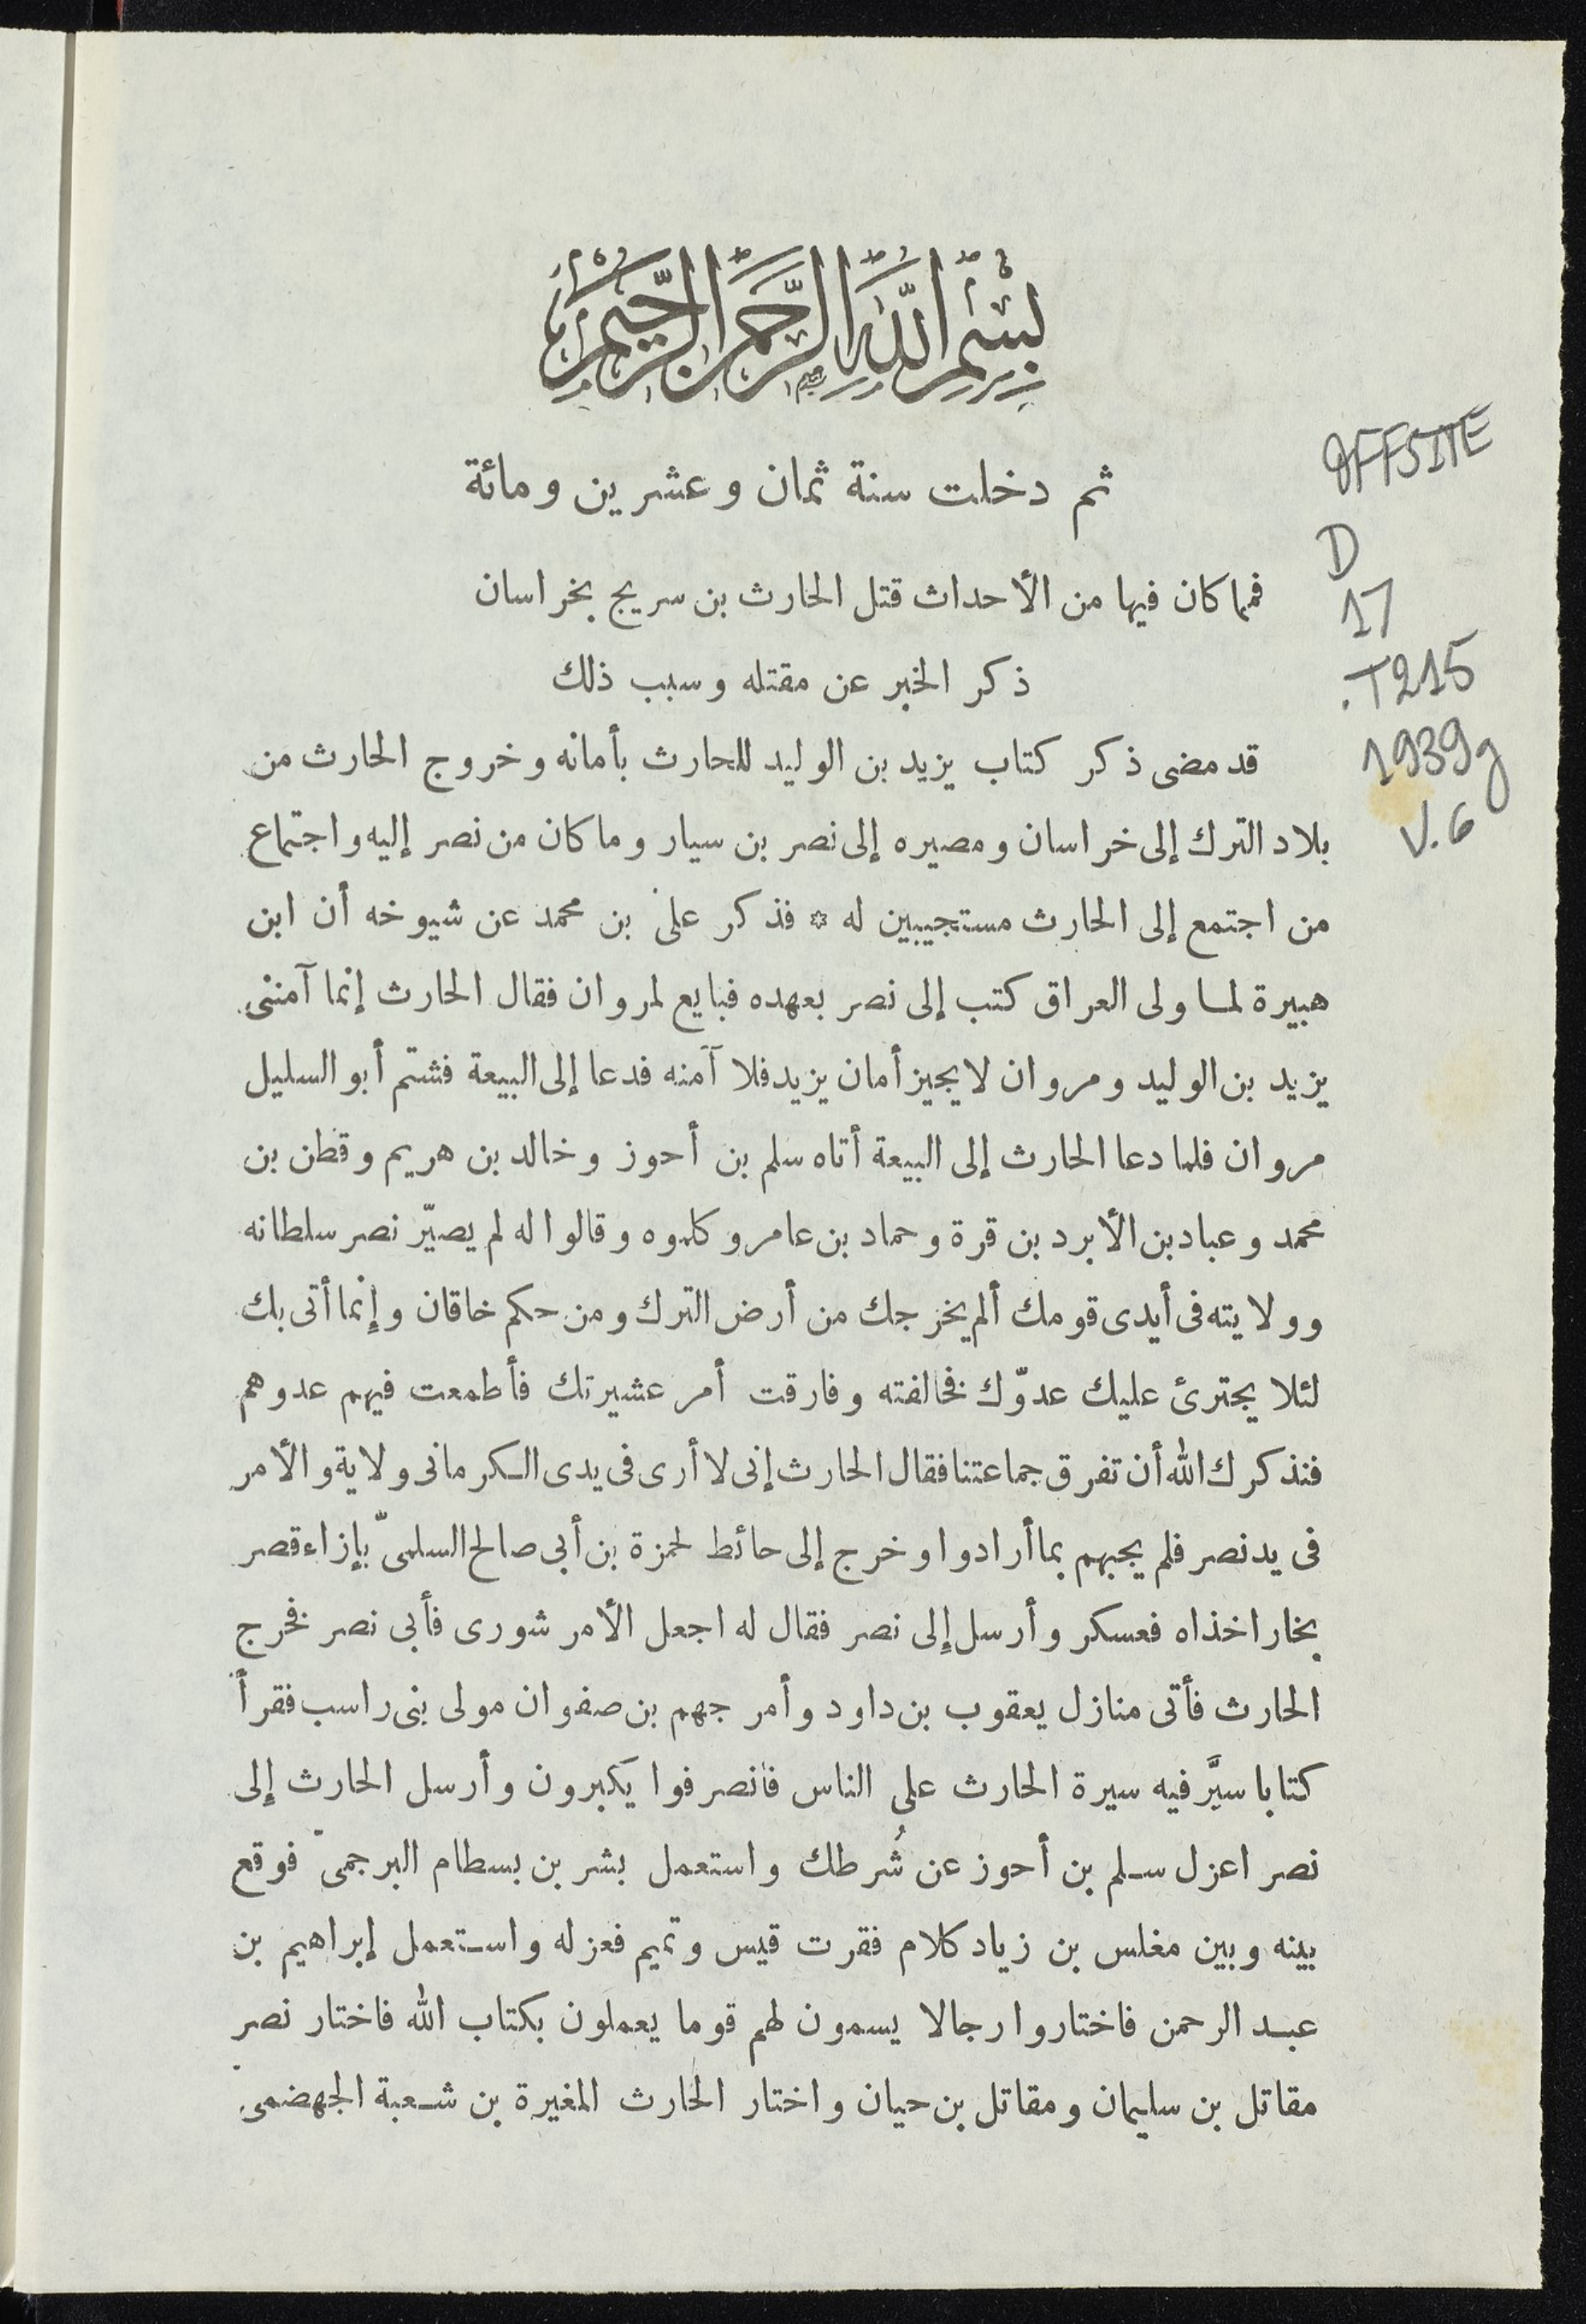 بِسْمِ اللَّهِ الرَّحْمَنِ الرَّحِيمِ
ثم دخلت سنة ثمان وعشرين ومائة
فما كان فيها من الأحداث قتل الحارث بن سريج بخراسان
ذكر الخبر عن مقتله وسبب ذلك
قد مضى ذكر كتاب يزيد بن الوليد للحارث بأمانه وخروج الحارث من
بلاد الترك إلى خراسان ومصيره إلى نصر بن سيار وما كان من نصر إليه واجتماع
من اجتمع إلى الحارث مستجيبين له * فذكر على بن محمد عن شيوخه أن ابن
هبيرة لما ولى العراق كتب إلى نصر بعهده فبايع لمروان فقال الحارث إنما آمننى
يزيد بن الوليد ومروان لا يجيز أمان يزيد فلا آمنه فدعا إلى البيعة فشتم أبو السليل
مروان فلما دعا الحارث إلى البيعة أتاه سلم بن أحوز وخالد بن هريم وقطن بن
محمد وعباد بن الأبرد بن قرة وحماد بن عامر وكلموه وقالوا له لم يصيّر نصر سلطانه
وولايته فى أيدى قومك ألم يخرجك من أرض الترك ومن حكم خاقان وإنما أتى بك
لئلا يجترئ عليك عدوّك فخالفته وفارقت أمر عشيرتك فأطمعت فيهم عدوهم
فنذكرك الله أن تفرق جماعتنا فقال الحارث إنى لا أرى فى يدى الكرمانى ولاية والأمر
فى يد نصر فلم يجبهم بما أرادوا وخرج إلى حائط لحمزة بن أبى صالح السلمىّ بإزاء قصر
بخاراخذاه فعسكر وأرسل إلى نصر فقال له اجعل الأمر شورى فأبى نصر فخرج
الحارث فأتى منازل يعقوب بن داود وأمر جهم بن صفوان مولى بنى راسب فقرأ
كتابا سيَّر فيه سيرة الحارث على الناس فانصرفوا يكبرون وأرسل الحارث إلى
نصر اعزل سلم بن أحوز عن شُرطك واستعمل بشر بن بسطام البرجمىّ فوقع
بينه وبين مغلس بن زياد كلام ففرت قيس وتميم فعزله واستعمل إبراهيم بن
عبد الرحمن فاختاروا رجالا يسمون لهم قوما يعملون بكتاب الله فاختار نصر
مقاتل بن سليمان ومقاتل بن حيان واختار الحارث المغيرة بن شعبة الجهضمىّ
OFFSITE
D
17
.T215
1939g
V.6